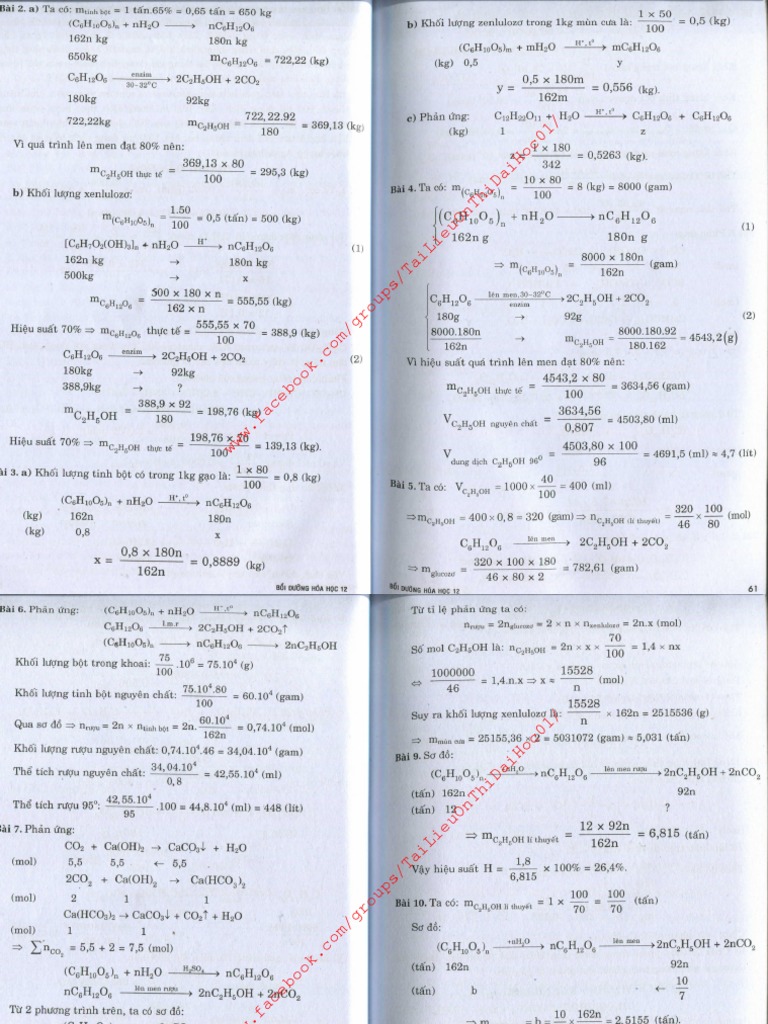 Bài 2. a) Ta có: m tinh bột = 1 tấn.65% = 0,65 tấn = 650 kg
(C₆H₁₀O₅)ₙ + nH₂O ⟶ nC₆H₁₂O₆
162n kg 180n kg
650kg m C₆H₁₂O₆ = 722,22 (kg)
C₆H₁₂O₆ —enzim, 30–32⁰C→ 2C₂H₅OH + 2CO₂
180kg 92kg
722,22kg m C₂H₅OH = 722,22.92 / 180 = 369,13 (kg)
Vì quá trình lên men đạt 80% nên:
m C₂H₅OH thực tế = 369,13 × 80 / 100 = 295,3 (kg)
b) Khối lượng xenlulozơ:
m (C₆H₁₀O₅)ₙ = 1.50 / 100 = 0,5 (tấn) = 500 (kg)
[C₆H₇O₂(OH)₃]ₙ + nH₂O —H⁺→ nC₆H₁₂O₆ (1)
162n kg → 180n kg
500kg → x
m C₆H₁₂O₆ = 500 × 180 × n / 162 × n = 555,55 (kg)
Hiệu suất 70% ⇒ m C₆H₁₂O₆ thực tế = 555,55 × 70 / 100 = 388,9 (kg)
C₆H₁₂O₆ —enzim→ 2C₂H₅OH + 2CO₂ (2)
180kg → 92kg
388,9kg → ?
m C₂H₅OH = 388,9 × 92 / 180 = 198,76 (kg)
Hiệu suất 70% ⇒ m C₂H₅OH thực tế = 198,76 × 70 / 100 = 139,13 (kg).
ài 3. a) Khối lượng tinh bột có trong 1kg gạo là: 1 × 80 / 100 = 0,8 (kg)
(C₆H₁₀O₅)ₙ + nH₂O —H⁺, t⁰→ nC₆H₁₂O₆
(kg) 162n 180n
(kg) 0,8 x
x = 0,8 × 180n / 162n = 0,8889 (kg)
BỒI DƯỠNG HÓA HỌC 12
b) Khối lượng zenlulozơ trong 1kg mùn cưa là: 1 × 50 / 100 = 0,5 (kg)
(C₆H₁₀O₅)ₘ + mH₂O —H⁺, t⁰→ mC₆H₁₂O₆
(kg) 0,5 y
y = 0,5 × 180m / 162m = 0,556 (kg).
c) Phản ứng: C₁₂H₂₂O₁₁ + H₂O —H⁺, t⁰→ C₆H₁₂O₆ + C₆H₁₂O₆
(kg) 1 z
z = 1 × 180 / 342 = 0,5263 (kg).
Bài 4. Ta có: m (C₆H₁₀O₅)ₙ = 10 × 80 / 100 = 8 (kg) = 8000 (gam)
(C₆H₁₀O₅)ₙ + nH₂O ⟶ nC₆H₁₂O₆ (1)
162n g 180n g
⇒ m (C₆H₁₀O₅)ₙ = 8000 × 180n / 162n (gam)
C₆H₁₂O₆ —lên men, 30-32⁰C, enzim→ 2C₂H₅OH + 2CO₂
180g → 92g (2)
8000.180n / 162n → m C₂H₅OH = 8000.180.92 / 180.162 = 4543,2 (g)
Vì hiệu suất quá trình lên men đạt 80% nên:
m C₂H₅OH thực tế = 4543,2 × 80 / 100 = 3634,56 (gam)
V C₂H₅OH nguyên chất = 3634,56 / 0,807 = 4503,80 (ml)
V dung dịch C₂H₅OH 96⁰ = 4503,80 × 100 / 96 = 4691,5 (ml) ≈ 4,7 (lít)
Bài 5. Ta có: V C₂H₅OH = 1000 × 40 / 100 = 400 (ml)
⇒ m C₂H₅OH = 400 × 0,8 = 320 (gam) ⇒ n C₂H₅OH (lí thuyết) = 320 / 46 × 100 / 80 (mol)
C₆H₁₂O₆ —lên men→ 2C₂H₅OH + 2CO₂
⇒ m glucozơ = 320 × 100 × 180 / 46 × 80 × 2 = 782,61 (gam)
BỒI DƯỠNG HÓA HỌC 12 61
Bài 6. Phản ứng: (C₆H₁₀O₅)ₙ + nH₂O —H⁺, t⁰→ nC₆H₁₂O₆
C₆H₁₂O₆ —l.m.r→ 2C₂H₅OH + 2CO₂↑
(C₆H₁₀O₅)ₙ ⟶ nC₆H₁₂O₆ ⟶ 2nC₂H₅OH
Khối lượng bột trong khoai: 75 / 100 .10⁶ = 75.10⁴ (g)
Khối lượng tinh bột nguyên chất: 75.10⁴.80 / 100 = 60.10⁴ (gam)
Qua sơ đồ ⇒ n rượu = 2n × n tinh bột = 2n. 60.10⁴ / 162n = 0,74.10⁴ (mol)
Khối lượng rượu nguyên chất: 0,74.10⁴.46 = 34,04.10⁴ (gam)
Thể tích rượu nguyên chất: 34,04.10⁴ / 0,8 = 42,55.10⁴ (ml)
Thể tích rượu 95⁰: 42,55.10⁴ / 95 .100 = 44,8.10⁴ (ml) = 448 (lít)
ài 7. Phản ứng:
CO₂ + Ca(OH)₂ → CaCO₃↓ + H₂O
(mol) 5,5 5,5 ← 5,5
2CO₂ + Ca(OH)₂ → Ca(HCO₃)₂
(mol) 2 1 1
Ca(HCO₃)₂ → CaCO₃↓ + CO₂↑ + H₂O
(mol) 1 1
⇒ ∑n CO₂ = 5,5 + 2 = 7,5 (mol)
(C₆H₁₀O₅)ₙ + nH₂O —H₂SO₄→ nC₆H₁₂O₆
nC₆H₁₂O₆ —lên men rượu→ 2nC₂H₅OH + 2nCO₂
Từ 2 phương trình trên, ta có sơ đồ:
Từ tỉ lệ phản ứng ta có:
n rượu = 2n glucozơ = 2 × n × n xenlulozơ = 2n.x (mol)
Số mol C₂H₅OH là: n C₂H₅OH = 2n × x × 70 / 100 = 1,4 × nx
⇔ 1000000 / 46 = 1,4.n.x ⇒ x ≈ 15528 / n (mol)
Suy ra khối lượng xenlulozơ là: 15528 / n × 162n = 2515536 (g)
⇒ m mùn cưa = 25155,36 × 2 = 5031072 (gam) ≈ 5,031 (tấn)
Bài 9. Sơ đồ:
(C₆H₁₀O₅)ₙ —+nH₂O→ nC₆H₁₂O₆ —lên men rượu→ 2nC₂H₅OH + 2nCO₂
(tấn) 162n 92n
(tấn) 12 ?
⇒ m C₂H₅OH lí thuyết = 12 × 92n / 162n = 6,815 (tấn)
Vậy hiệu suất H = 1,8 / 6,815 × 100% = 26,4%.
Bài 10. Ta có: m C₂H₅OH lí thuyết = 1 × 100 / 70 = 100 / 70 (tấn)
Sơ đồ:
(C₆H₁₀O₅)ₙ —+nH₂O→ nC₆H₁₂O₆ —lên men→ 2nC₂H₅OH + 2nCO₂
(tấn) 162n 92n
(tấn) b ← 10 / 7
⇒ m = b = 10 × 162n = 2,5155 (tấn).
www.facebook.com/groups/TaiLieuOnThiDaiHoc01/
www.facebook.com/groups/TaiLieuOnThiDaiHoc01/